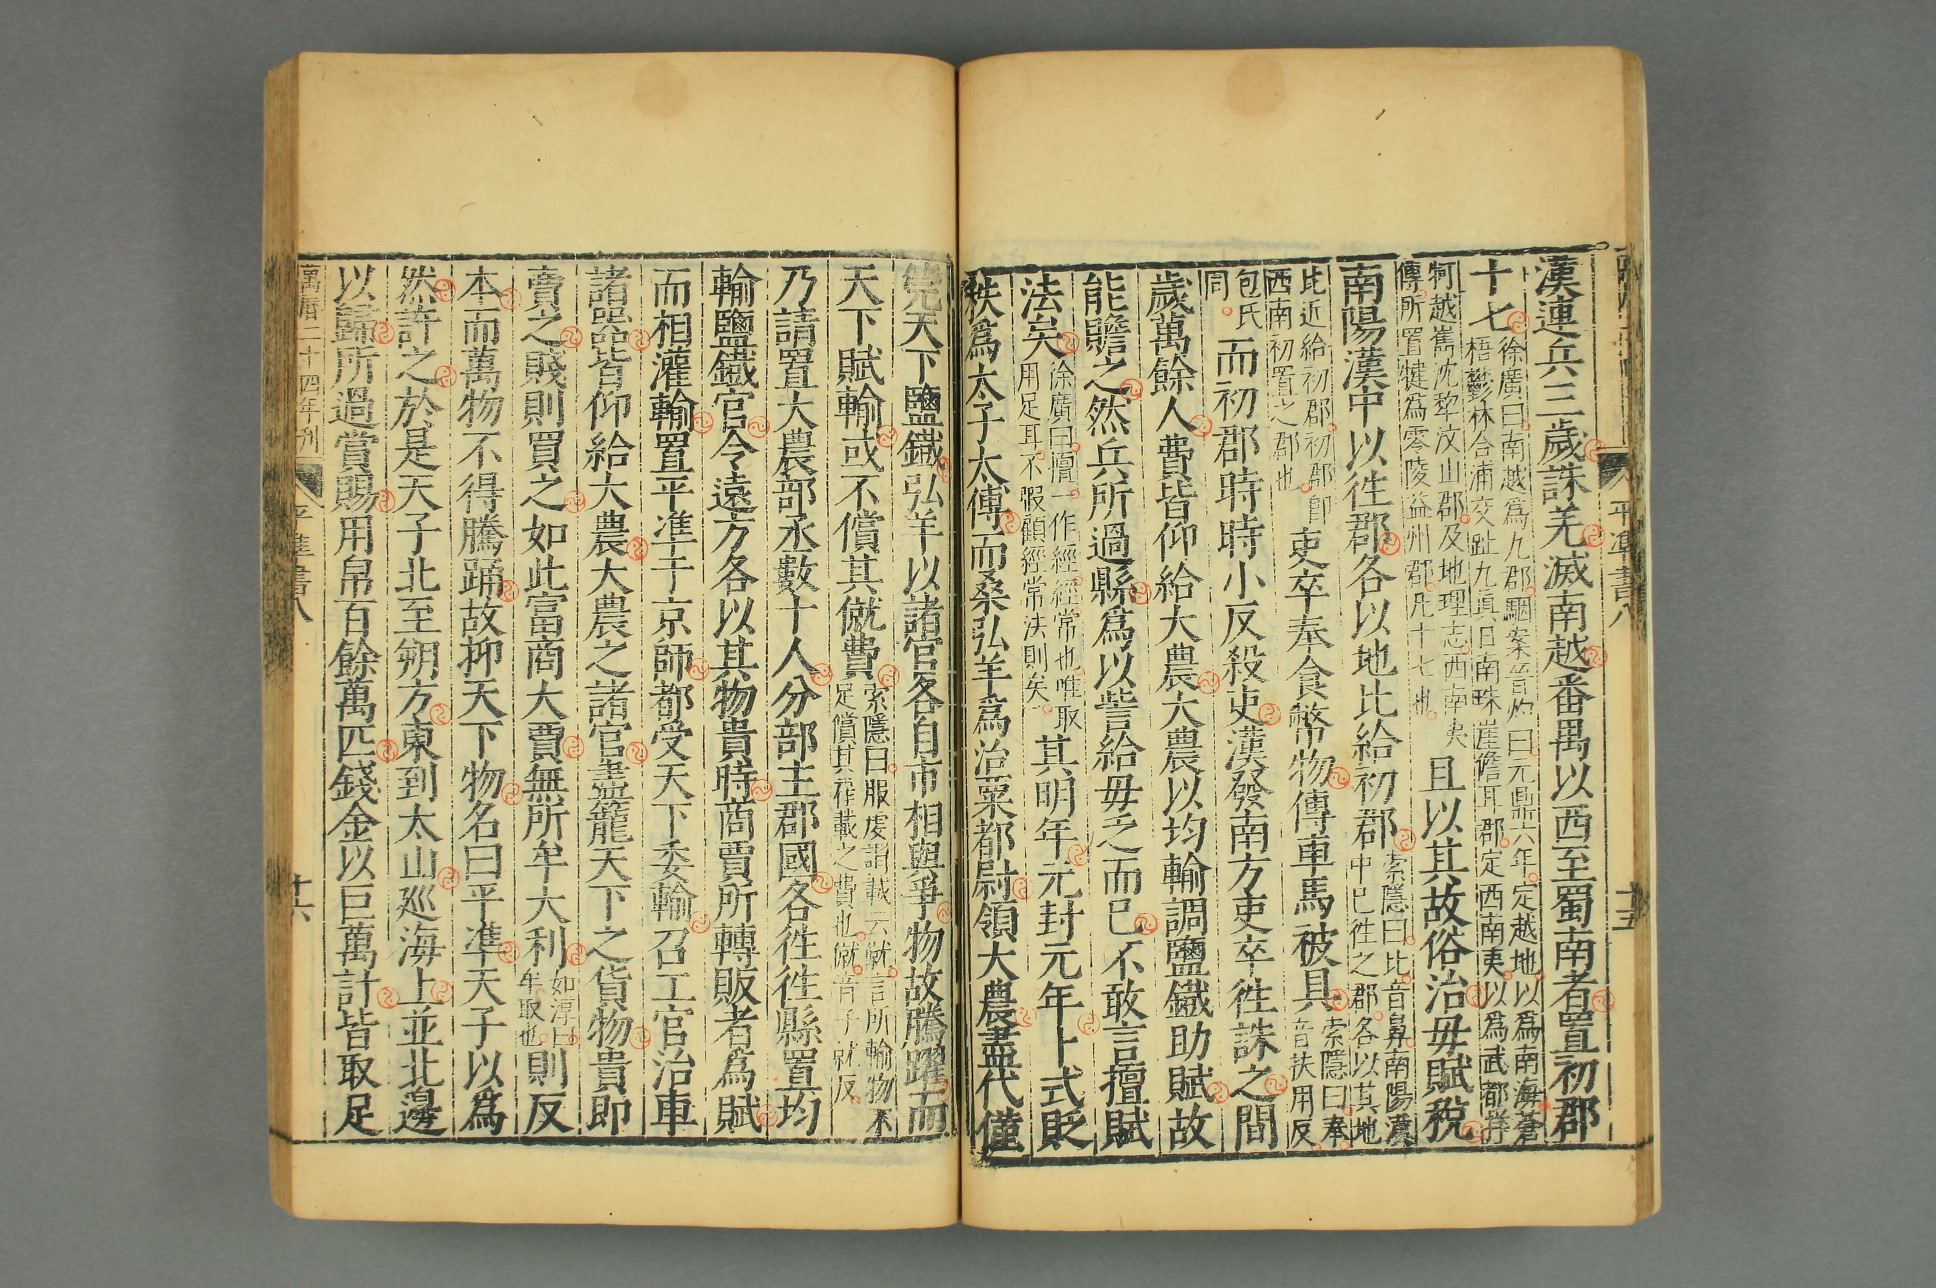 平準書八
十五
漢連兵三歲誅羌滅南越番禺以西至蜀南者置初郡
十七徐廣曰南越爲九郡駰案晉灼曰元鼎六年定越地以爲南海蒼梧鬱林合浦交趾九真日南珠崖儋耳郡定西南夷以爲武都牂
牁越嶲沈犂汶山郡及地理志西南夷傳所置犍爲零陵益州郡凡十七也且以其故俗治毋賦稅
南陽漢中以徃郡各以地比給初郡索隱曰比音鼻南陽漢中已徃之郡各以其地
比近給初郡初郡卽西南初置之郡也吏卒奉食幣物傳車馬被具索隱曰奉音扶用反
包氏同而初郡時時小反殺吏漢發南方吏卒徃誅之間
歲萬餘人費皆仰給大農大農以均輸調鹽鐵助賦故
能贍之然兵所過縣爲以訾給毋乏而已不敢言擅賦
法矣徐廣曰擅一作經經常也唯取用足耳不暇顧經常法則矣其明年元封元年卜式貶
秩爲太子太傅而桑弘羊爲治粟都尉領大農盡代僅
筦天下鹽鐵弘羊以諸官各自市相與爭物故騰躍而
天下賦輸或不償其僦費索隱曰服虔謂載云僦言所輸物不足償其雇載之費也僦音子就反
乃請置大農部丞數十人分部主郡國各徃徃縣置均
輸鹽鐵官令遠方各以其物貴時商賈所轉販者爲賦
而相灌輸置平準于京師都受天下委輸召工官治車
諸器皆仰給大農大農之諸官盡籠天下之貨物貴即
賣之賤則買之如此富商大賈無所牟大利如淳曰牟取也則反
本而萬物不得騰踊故抑天下物名曰平準天子以爲
然許之於是天子北至朔方東到太山巡海上並北邊
以歸所過賞賜用帛百餘萬匹錢金以巨萬計皆取足
萬曆二十四年刊
平準書八
十六